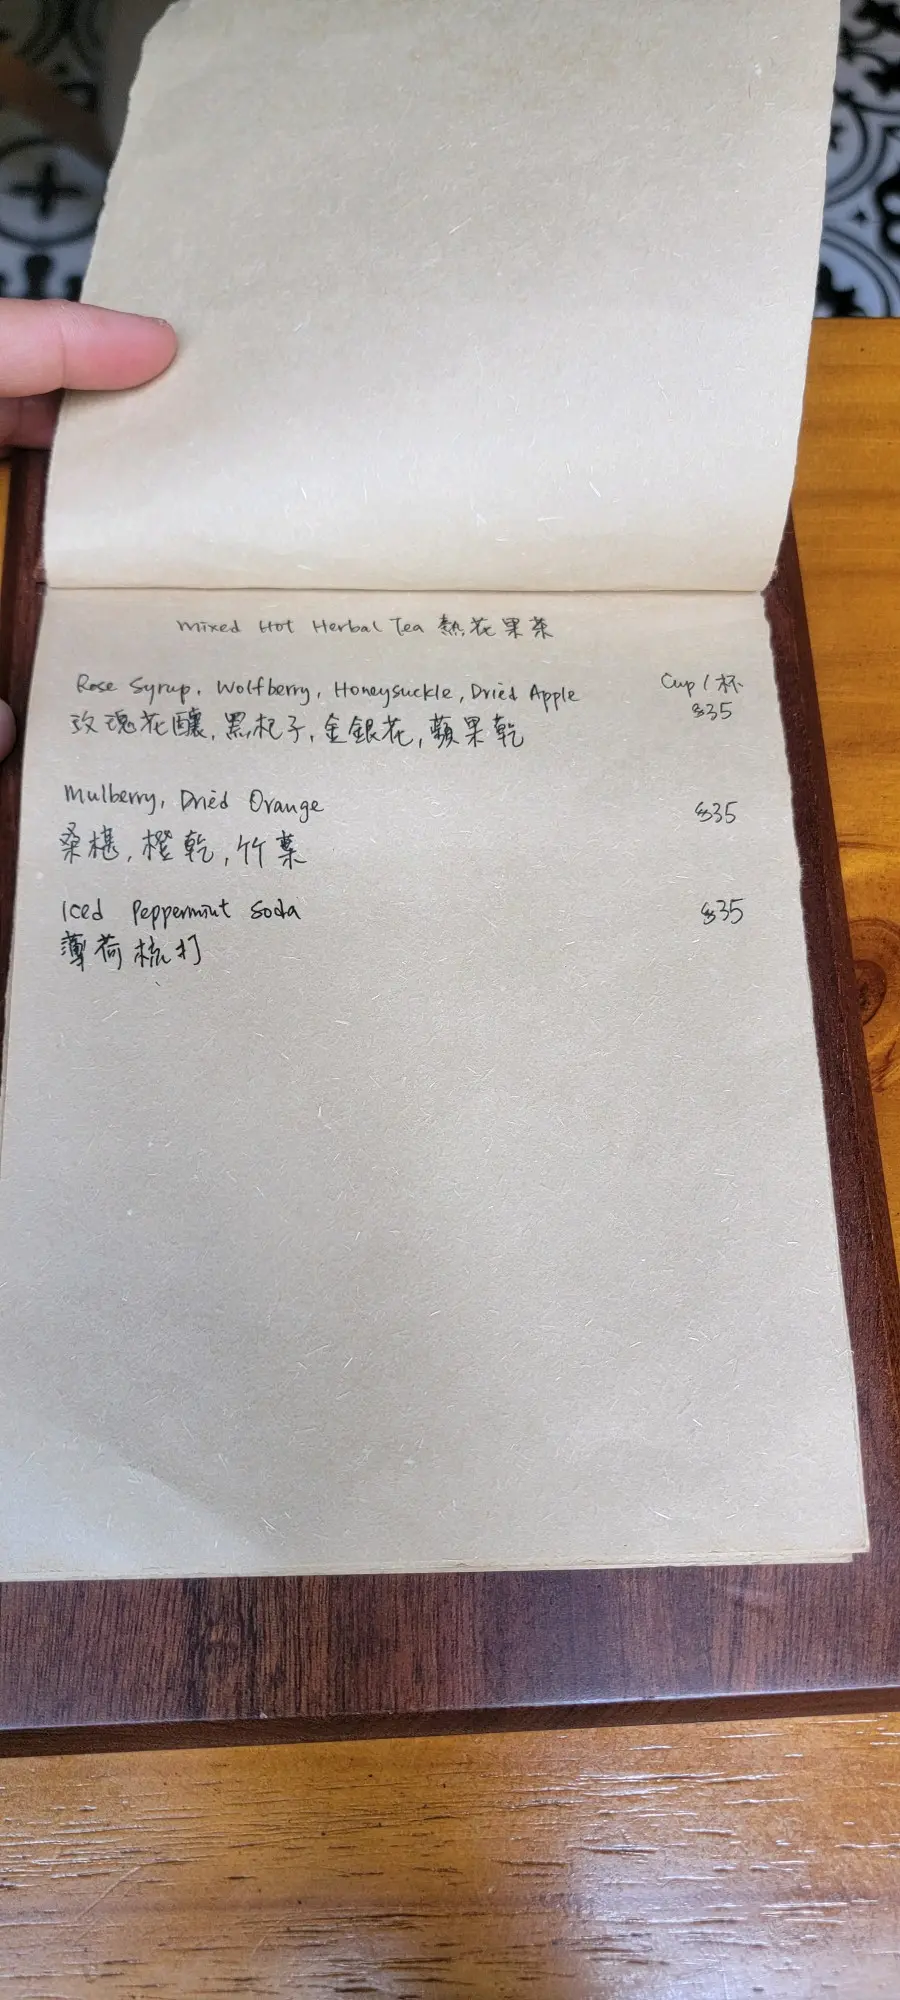 Mixed Hot Herbal Tea 熱花果茶
Cup / 杯
Rose Syrup, Wolfberry, Honeysuckle, Dried Apple $35
玫瑰花釀, 黑杞子, 金銀花, 蘋果乾
Mulberry, Dried Orange $35
桑椹, 橙乾, 竹葉
Iced Peppermint Soda $35
薄荷梳打